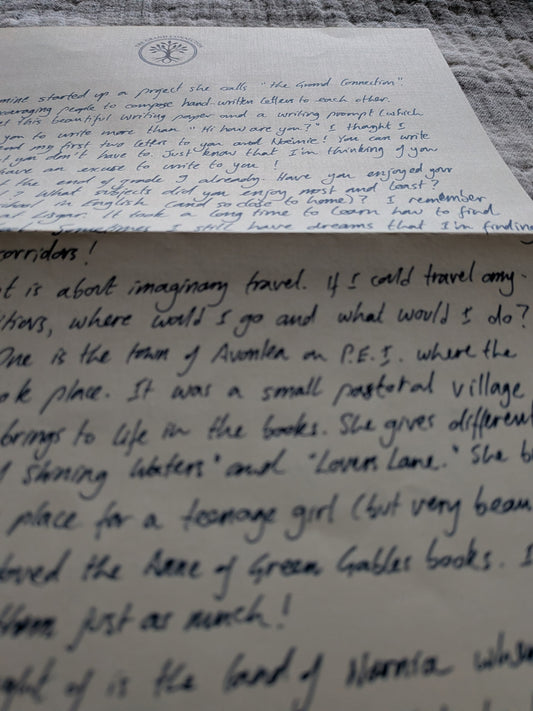 THE GRAND CONNECTION
mine started up a project she calls "the Grand Connection".
couraging people to compose hand-written letters to each other.
this beautiful writing paper and a writing prompt (which
you to write more than "Hi how are you?" I thought I
end my first two letters to you and Noémie! You can write
you don't have to. Just know that I'm thinking of you
have an excuse to write to you!
the end of grade 7 already. Have you enjoyed your
What subjects did you enjoy most and least?
school in English (and so close to home)? I remember
at Lisgar. It took a long time to learn how to find
Sometimes I still have dreams that I'm finding
corridors!
t is about imaginary travel. If I could travel any-
itions, where would I go and what would I do?
One is the town of Avonlea on P.E.I. where the
ok place. It was a small pastoral village
brings to life in the books. She gives different
f Shining Waters" and "Lovers Lane." She b
place for a teenage girl (but very beau
loved the Anne of Green Gables books. I
them just as much!
ght of is the land of Narnia